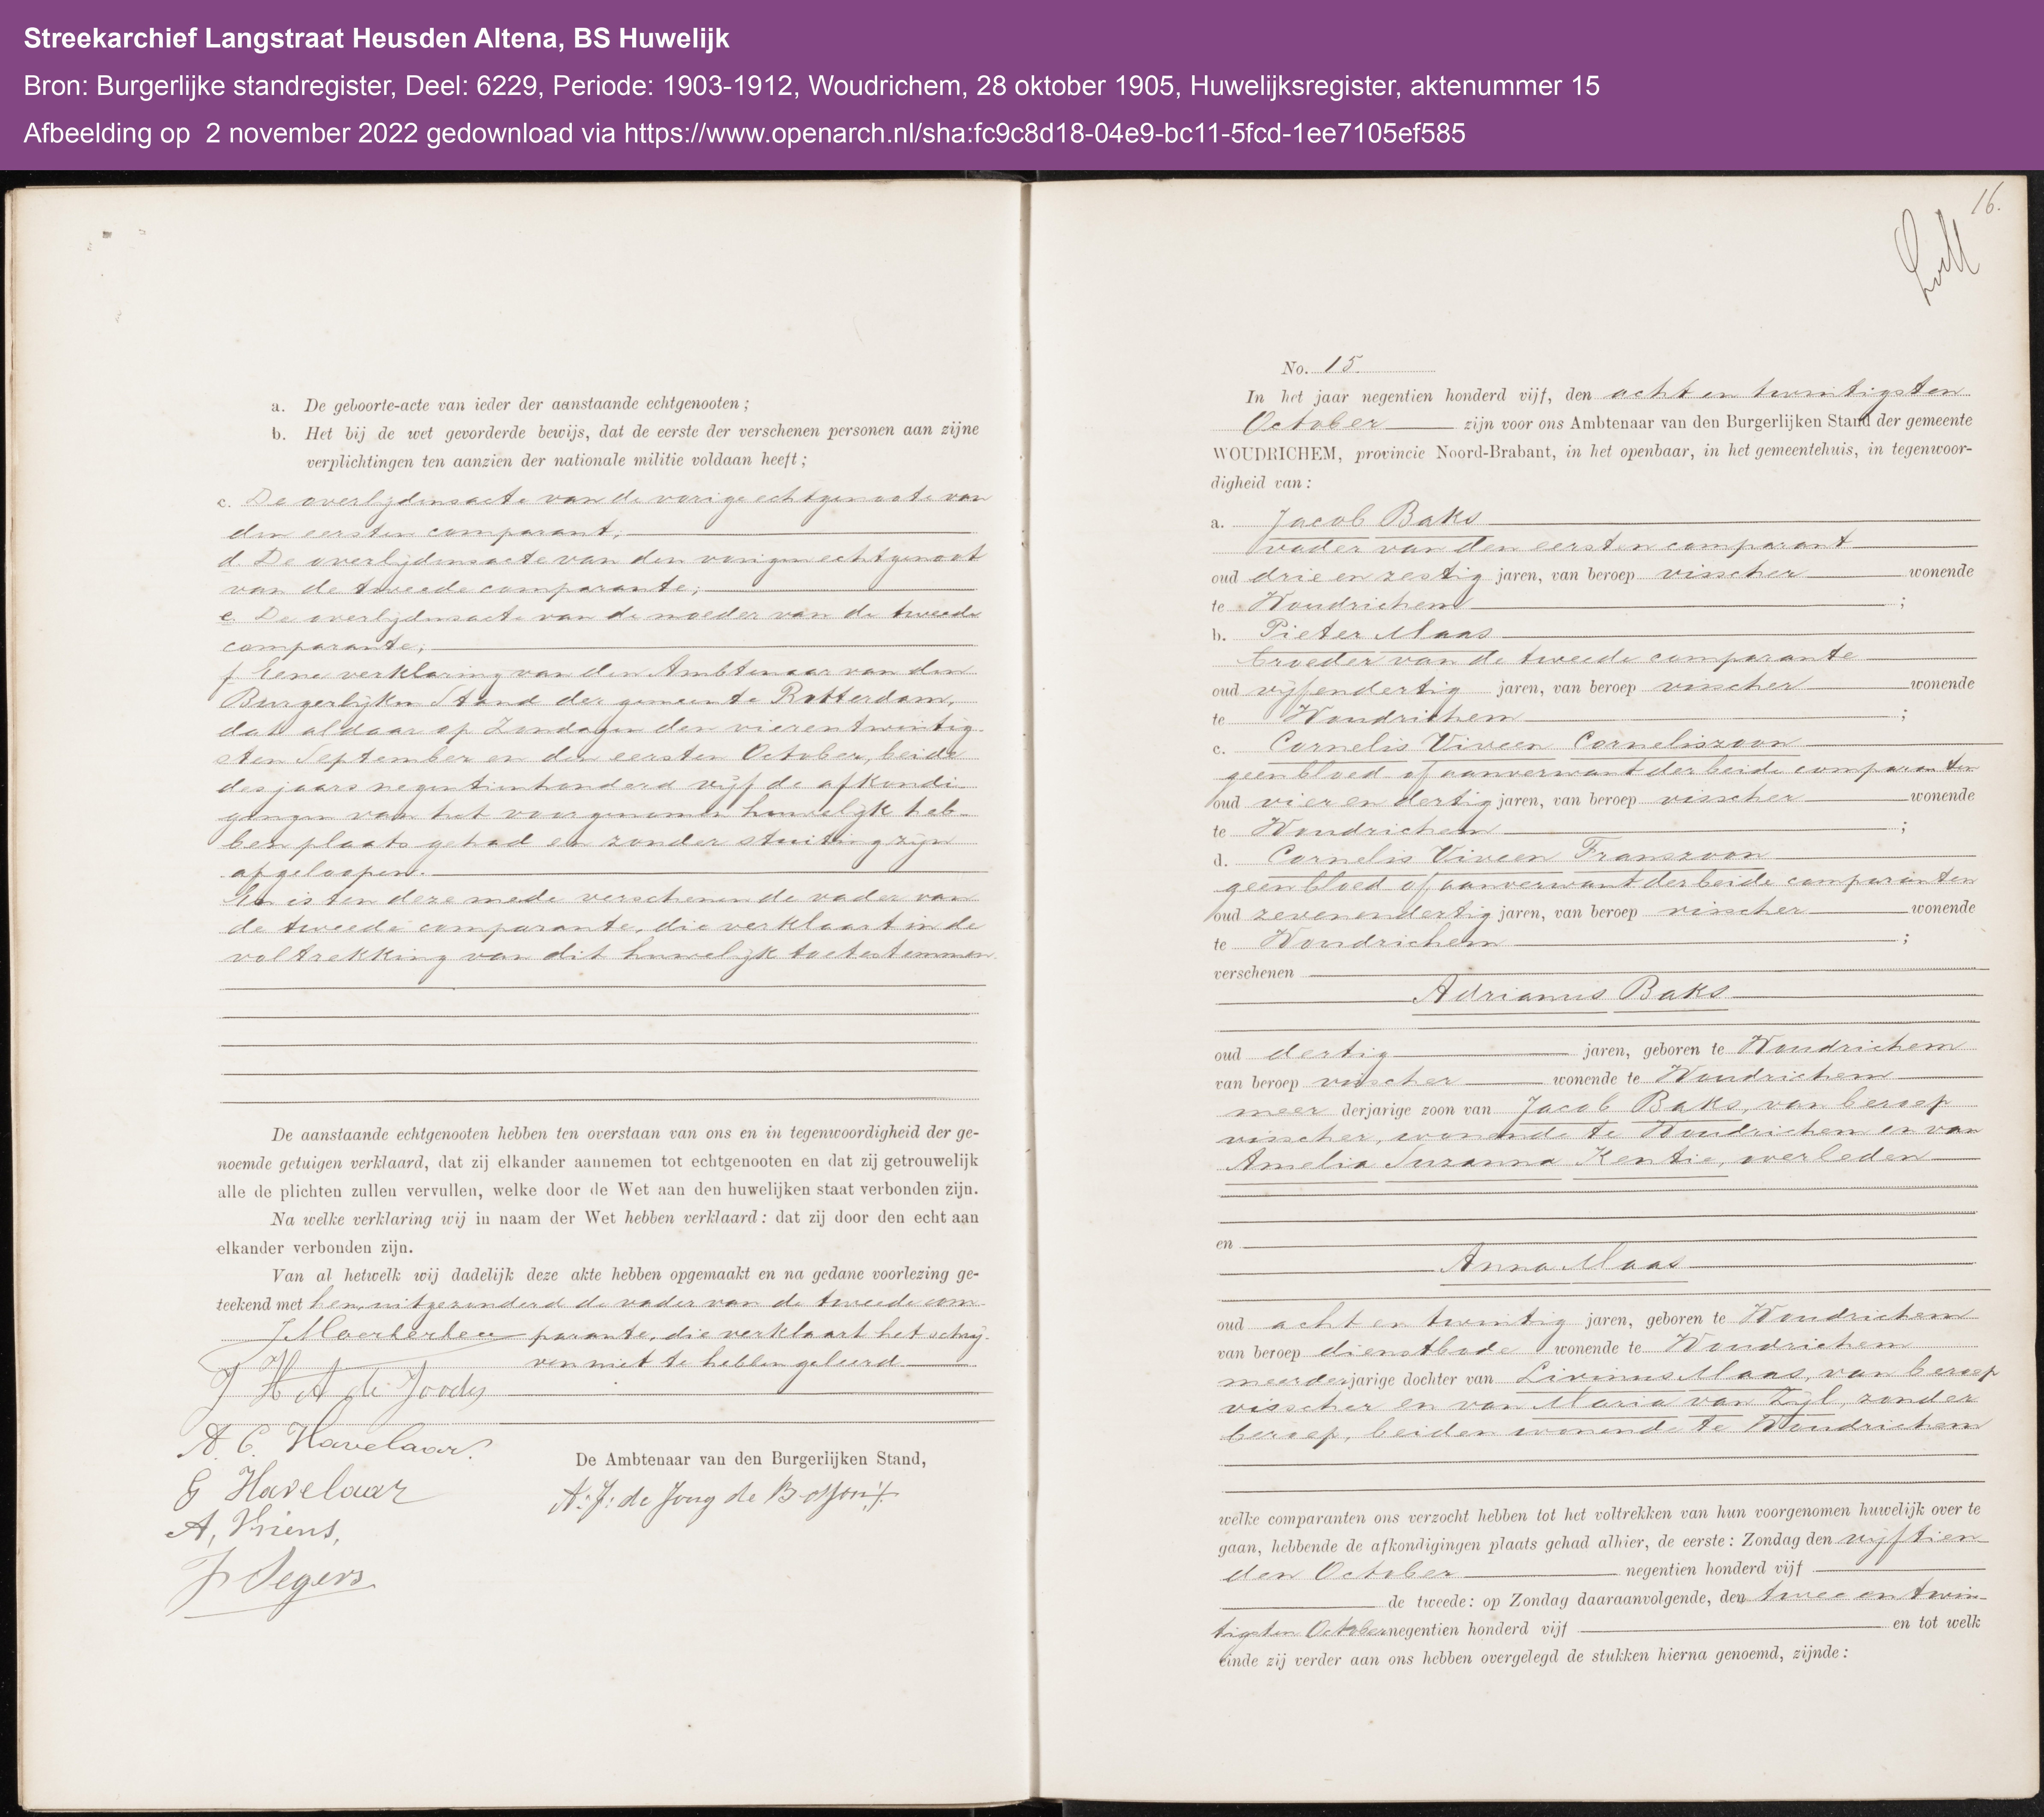 Streekarchief Langstraat Heusden Altena, BS Huwelijk
Bron: Burgerlijke standregister, Deel: 6229, Periode: 1903-1912, Woudrichem, 28 oktober 1905, Huwelijksregister, aktenummer 15
Afbeelding op 2 november 2022 gedownload via https://www.openarch.nl/sha:fc9c8d18-04e9-bc11-5fcd-1ee7105ef585
a. De geboorte-acte van ieder der aanstaande echtgenooten;
b. Het bij de wet gevorderde bewijs, dat de eerste der verschenen personen aan zijne
verplichtingen ten aanzien der nationale militie voldaan heeft;
c. De overlijdensacte van de vorige echtgenoote van
den eersten comparant;
d De overlijdensacte van den vorigen echtgenoot
van de tweede comparante;
e De overlijdensacte van de moeder van de tweede
comparante;
f Eene verklaring van den Ambtenaar van den
Burgerlijken Stand der gemeente Rotterdam,
dat aldaar op Zondagen den vierentwintig-
sten September en den eersten October, beide
des jaars negentienhonderd vijf de afkondi-
gingen van het voorgenomen huwelijk heb-
ben plaats gehad en zonder stuiting zijn
afgeloopen.
En is ten deze mede verschenen de vader van
de tweede comparante, die verklaart in de
voltrekking van dit huwelijk toe te stemmen.
De aanstaande echtgenooten hebben ten overstaan van ons en in tegenwoordigheid der ge-
noemde getuigen verklaard, dat zij elkander aannemen tot echtgenooten en dat zij getrouwelijk
alle de plichten zullen vervullen, welke door de Wet aan den huwelijken staat verbonden zijn.
Na welke verklaring wij in naam der Wet hebben verklaard: dat zij door den echt aan
elkander verbonden zijn.
Van al hetwelk wij dadelijk deze akte hebben opgemaakt en na gedane voorlezing ge-
teekend met hen, uitgezonderd de vader van de tweede com-
parante, die verklaart het schrij-
ven niet te hebben geleerd
A. C. Havelaar.
G Havelaar
De Ambtenaar van den Burgerlijken Stand,
A. J. de Jong de
A, Vriens,
Segers
16.
No. 15.
In het jaar negentien honderd vijf, den acht en twintigsten
October zijn voor ons Ambtenaar van den Burgerlijken Stand der gemeente
WOUDRICHEM, provincie Noord-Brabant, in het openbaar, in het gemeentehuis, in tegenwoor-
digheid van:
a. Jacob Baks
vader van den eersten comparant
oud drie en zestig jaren, van beroep visscher wonende
te Woudrichem ;
b. Pieter Maas
broeder van de tweede comparante
oud vijfendertig jaren, van beroep visscher wonende
te Woudrichem ;
c. Cornelis Viveen Corneliszoon
geen bloed of aanverwant der beide comparanten
oud vier en dertig jaren, van beroep visscher wonende
te Woudrichem ;
d. Cornelis Viveen Franszoon
geen bloed of aanverwant der beide comparanten
oud zevenendertig jaren, van beroep visscher wonende
te Woudrichem ;
verschenen
Adrianus Baks
oud dertig jaren, geboren te Woudrichem
van beroep visscher wonende te Woudrichem
meer derjarige zoon van Jacob Baks, van beroep
visscher, wonende te Woudrichem en van
Amelia Suzanna Kentie, overleden
en
Anna Maas
oud acht en twintig jaren, geboren te Woudrichem
van beroep dienstbode wonende te Woudrichem
meerderjarige dochter van Livinus Maas, van beroep
visscher en van Maria van Zijl, zonder
beroep, beiden wonende te Woudrichem
welke comparanten ons verzocht hebben tot het voltrekken van hun voorgenomen huwelijk over te
gaan, hebbende de afkondigingen plaats gehad alhier, de eerste: Zondag den vijftien-
den October negentien honderd vijf
de tweede: op Zondag daaraanvolgende, den twee en twin-
tigsten October negentien honderd vijf en tot welk
einde zij verder aan ons hebben overgelegd de stukken hierna genoemd, zijnde: